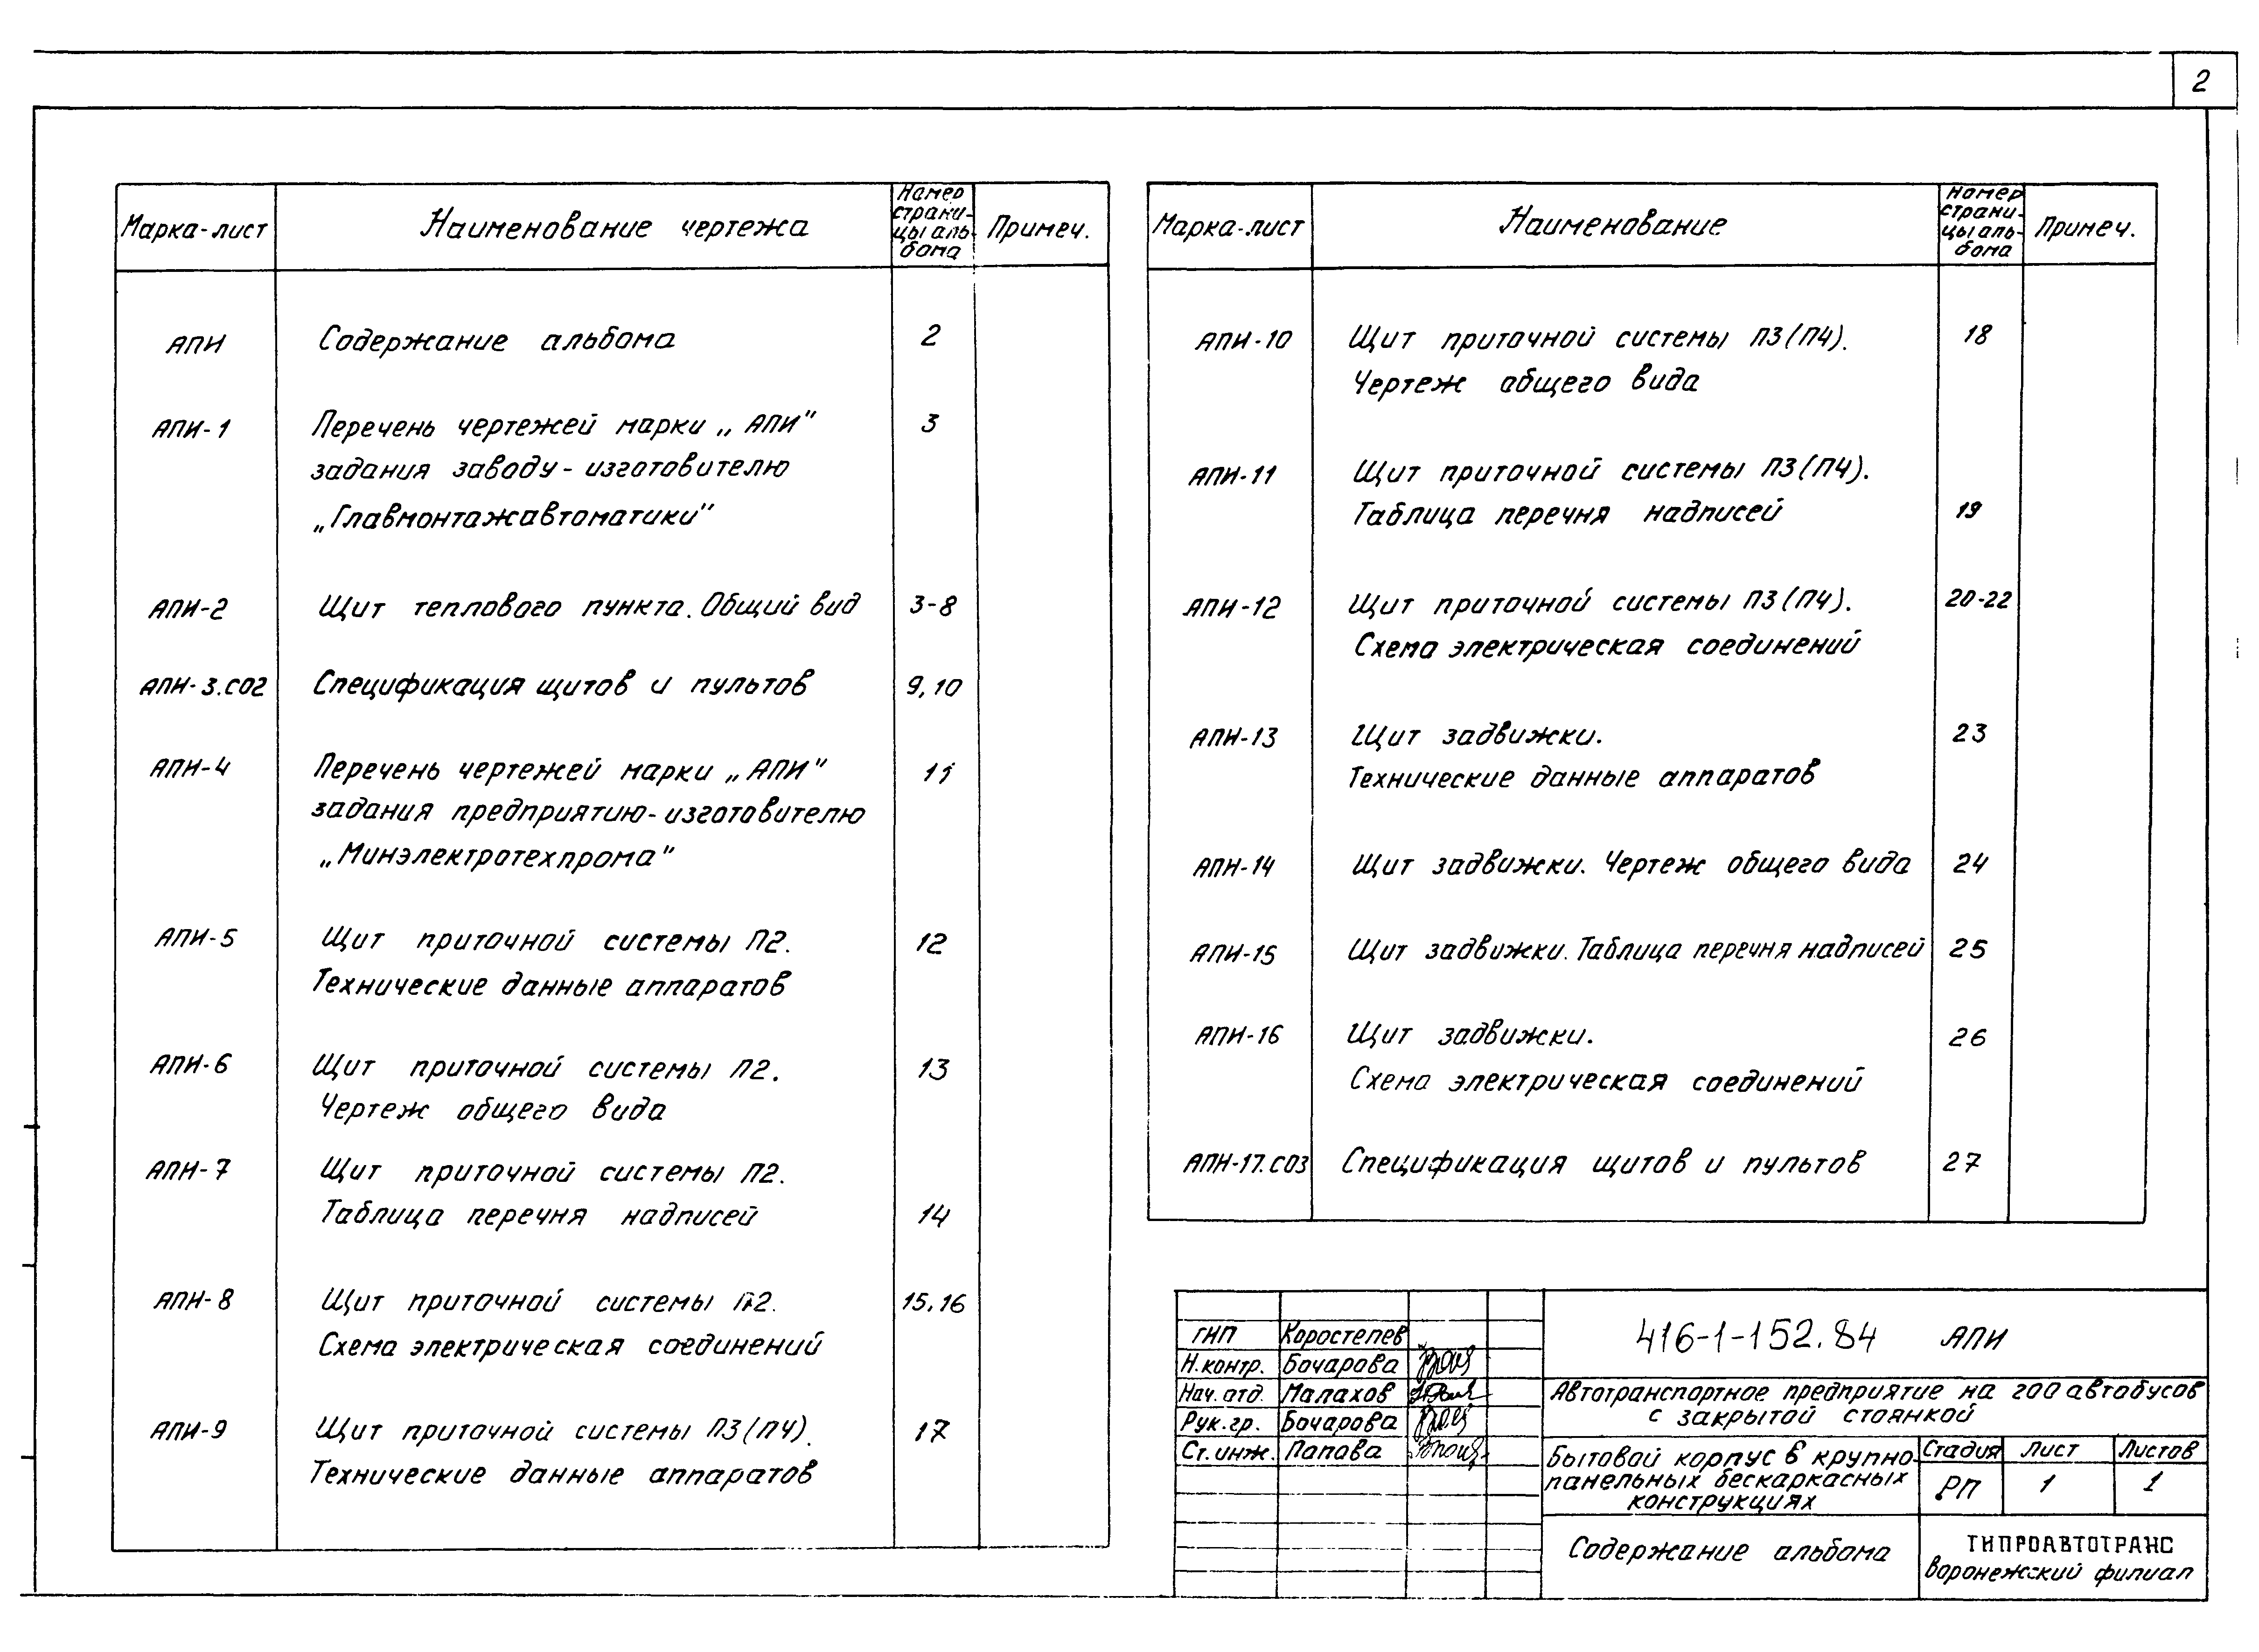 2
Марка-лист Наименование чертежа Номер страни-цы аль-бома Примеч.
АПИ Содержание альбома 2
АПИ-1 Перечень чертежей марки „АПИ" 3
задания заводу-изготовителю
„Главмонтажавтоматики"
АПИ-2 Щит теплового пункта. Общий вид 3-8
АПИ-3.СО2 Спецификация щитов и пультов 9,10
АПИ-4 Перечень чертежей марки „АПИ" 11
задания предприятию-изготовителю
„Минэлектротехпрома"
АПИ-5 Щит приточной системы П2. 12
Технические данные аппаратов
АПИ-6 Щит приточной системы П2. 13
Чертеж общего вида
АПИ-7 Щит приточной системы П2.
Таблица перечня надписей 14
АПИ-8 Щит приточной системы П2. 15,16
Схема электрическая соединений
АПИ-9 Щит приточной системы П3(П4). 17
Технические данные аппаратов
Марка-лист Наименование Номер страни-цы аль-бома Примеч.
АПИ-10 Щит приточной системы П3(П4). 18
Чертеж общего вида
АПИ-11 Щит приточной системы П3(П4).
Таблица перечня надписей 19
АПИ-12 Щит приточной системы П3(П4). 20-22
Схема электрическая соединений
АПИ-13 Щит задвижки. 23
Технические данные аппаратов
АПИ-14 Щит задвижки. Чертеж общего вида 24
АПИ-15 Щит задвижки. Таблица перечня надписей 25
АПИ-16 Щит задвижки. 26
Схема электрическая соединений
АПИ-17.СО3 Спецификация щитов и пультов 27
ГИП Коростелев
Н.контр. Бочарова
Нач. отд. Малахов
Рук. гр. Бочарова
Ст. инж. Попова
416-1-152.84 АПИ
Автотранспортное предприятие на 200 автобусов
с закрытой стоянкой
Бытовой корпус в крупно-
панельных бескаркасных
конструкциях
Стадия Лист Листов
РП 1 1
Содержание альбома
ГИПРОАВТОТРАНС
Воронежский филиал